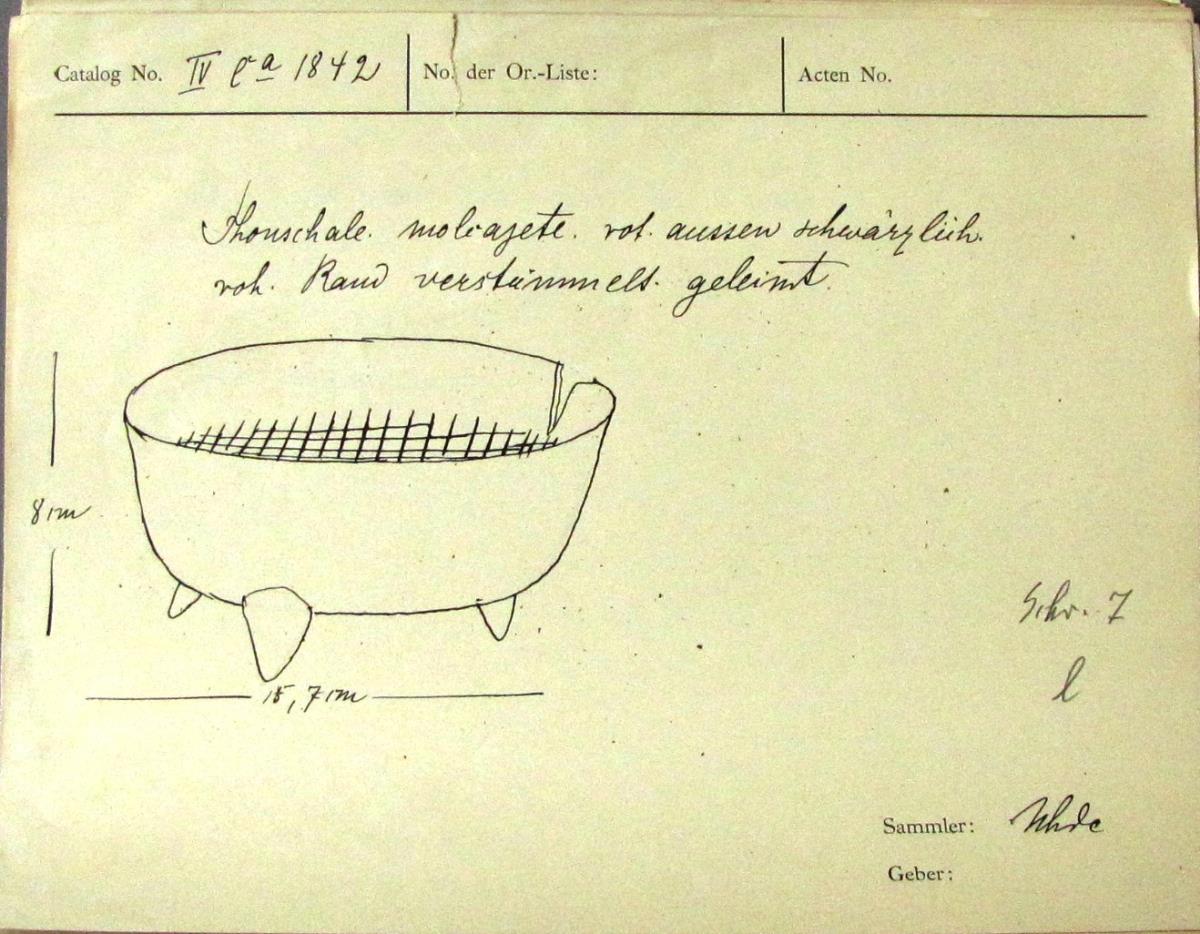 Catalog No. IV Ca 1842 No. der Or.-Liste: Acten No.
Thonschale. molcajete. rot. aussen schwärzlich.
roh. Rand verstümmelt. geleimt.
8 cm
Schr. 7
l
15,7 cm
Sammler: Uhde
Geber: